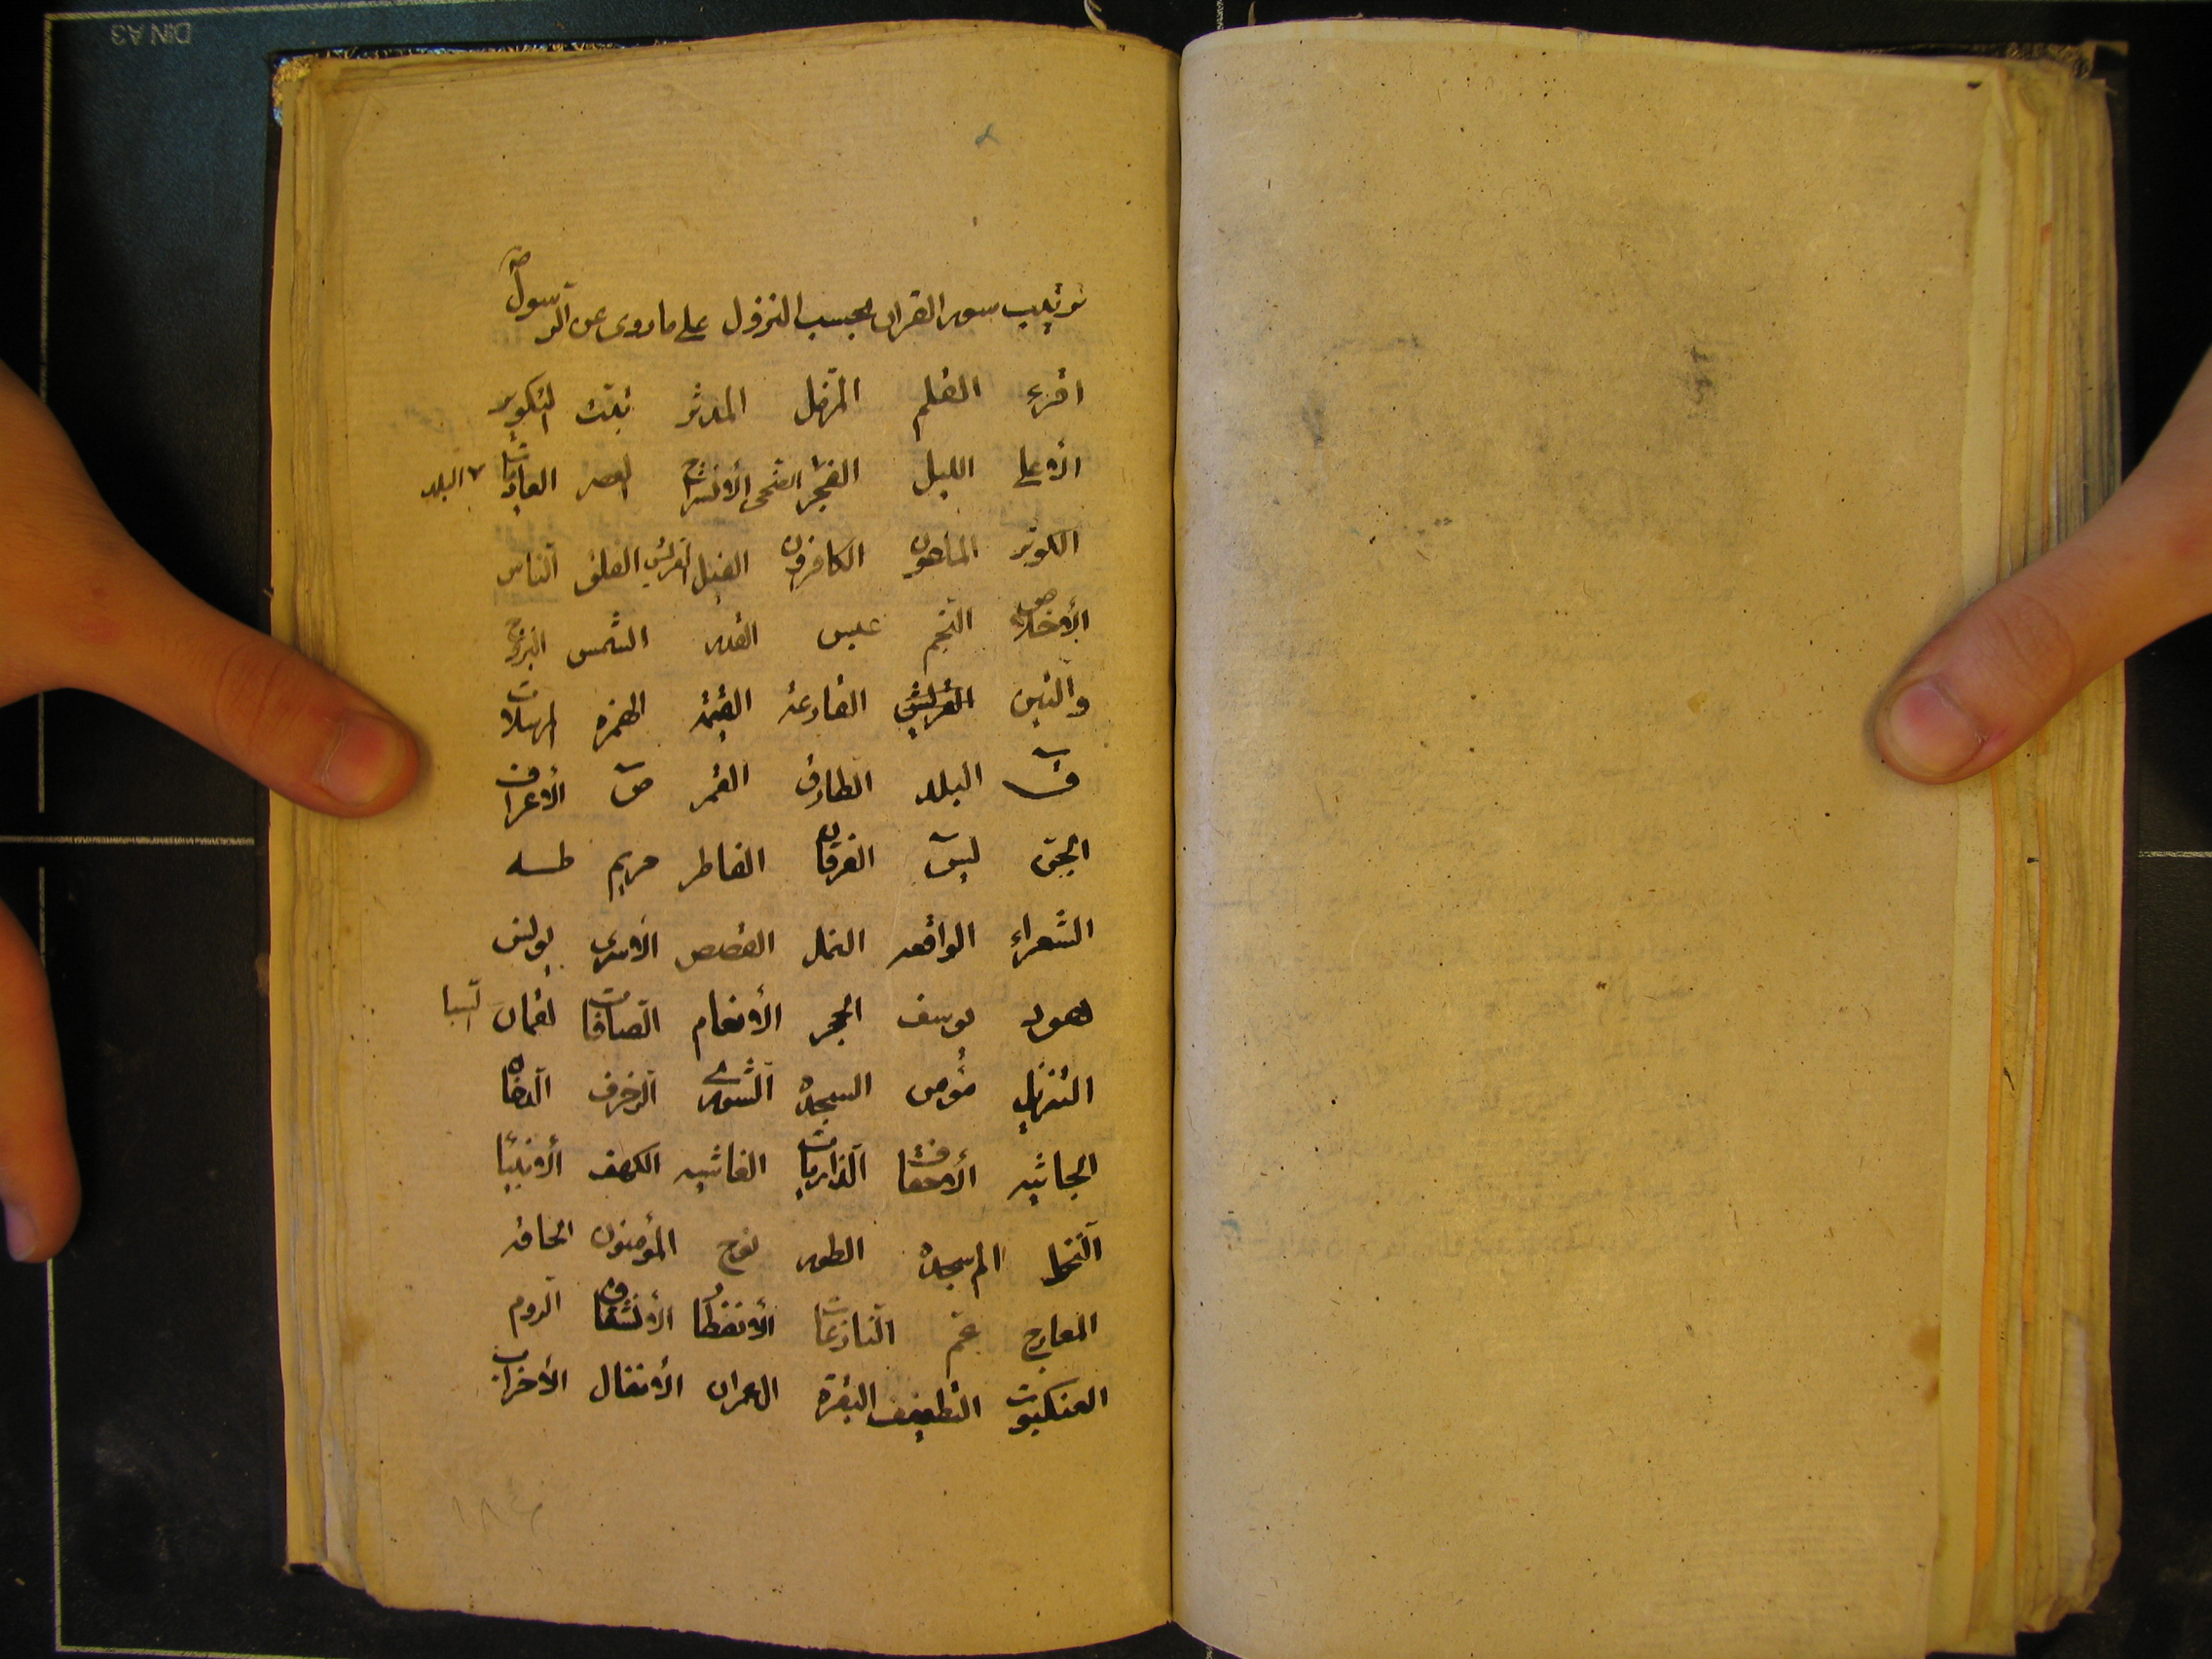 ترتيب سور القران بحسب النزول على ما روى عن الرسول ص
اقرء القلم المزمل المدثر تبت التكوير
الأعلى الليل الفجر الضحى الأنشراح العصر العاديات البلد
الكوثر الماعون الكافرون الفيل القريش الفلق الناس
الأخلاص النجم عبس القدر الشمس البروج
والتين القريش القارعة القيمة الهمزه المرسلات
ق البلد الطارق القمر ص الأعراف
الجن يس الفرقان الفاطر مريم طه
الشعراء الواقعه النمل القصص الاسرى يونس
هود يوسف الحجر الأنعام الصافات لقمان السبا
التنزيل مؤمن السجدة الشورى الزخرف الدخان
الجاثيه الأحقاف الذاريات الغاشيه الكهف الأنبيا
النحل الم سجدة الطور نوح المؤمنون الحاقه
المعارج عم النازعات الأنفطار الأنشقاق الروم
العنكبوت التطفيف البقرة العمران الأنفال الأحزاب
DIN A3